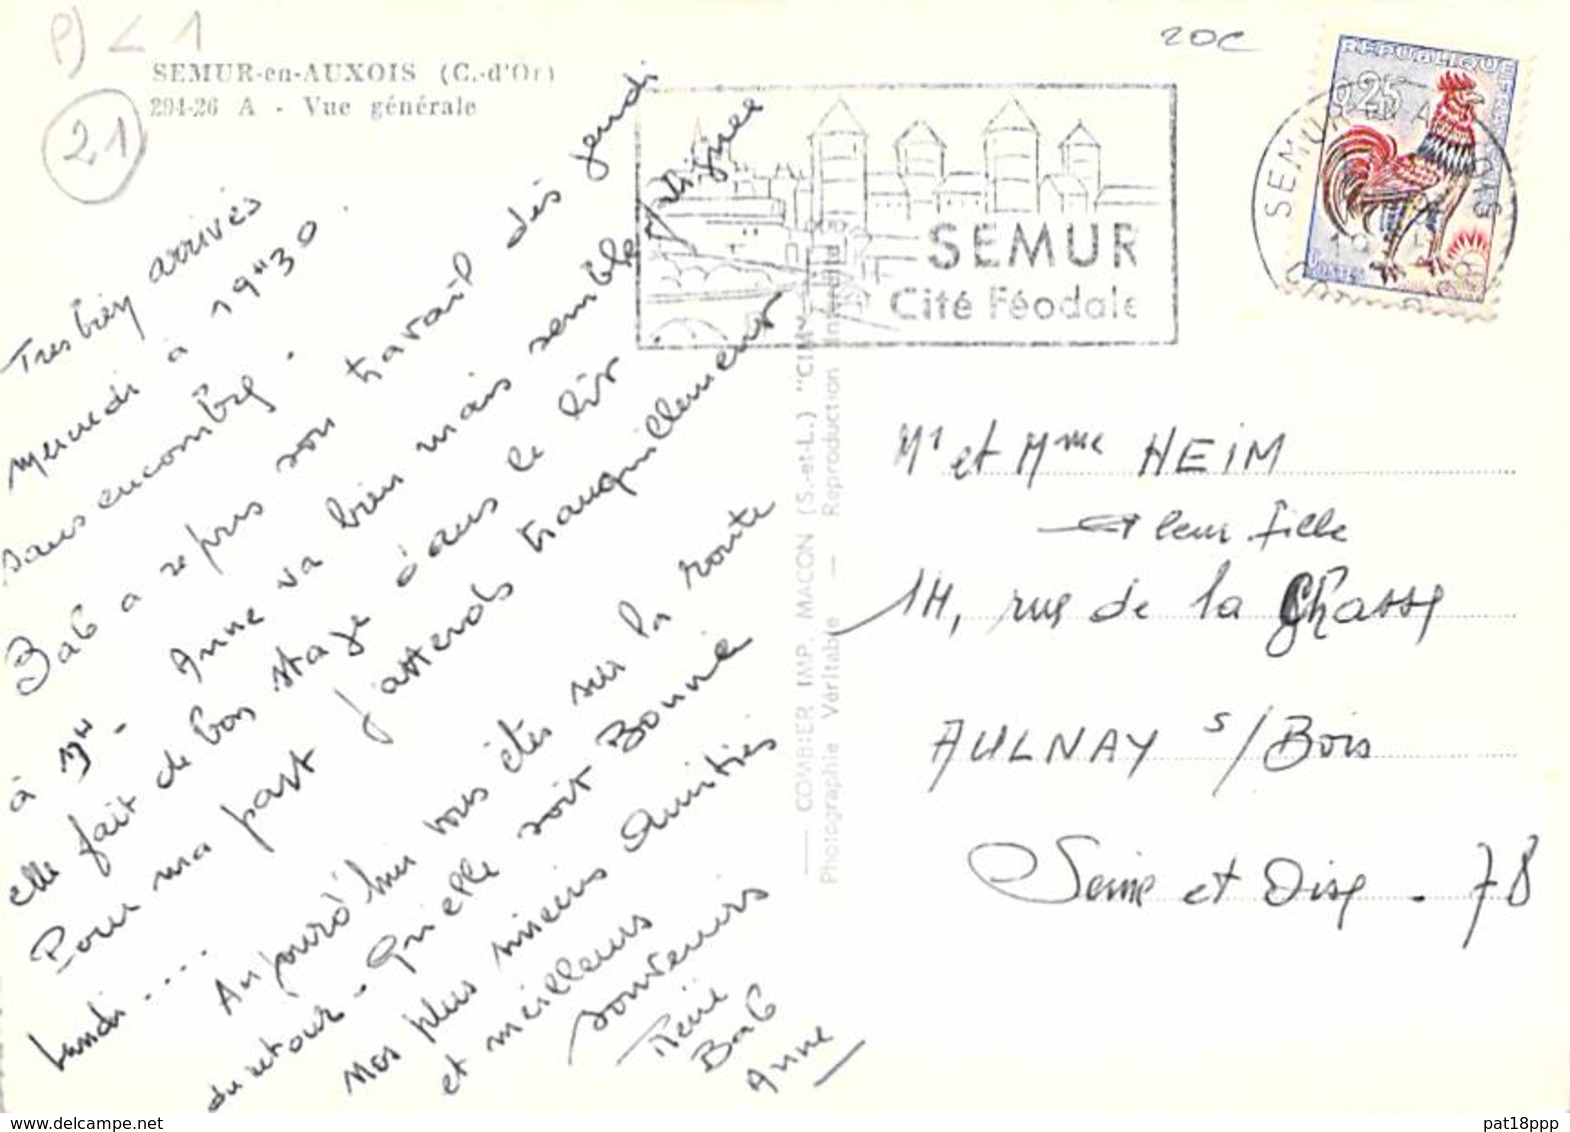 P) < 1
20c
SEMUR-en-AUXOIS (C.-d'Or)
294-26 A - Vue générale
21
Tres bien arrivés
mercredi à 19H30.
sans encombre.
Bab a repris son travail dès jeudi
à 13H - Anne va bien mais semble fatiguée
elle fait de bon stage dans le lit.
Pour ma part j'attends tranquillement
lundi....
Aujourd'hui vous êtes sur la route
du retour - Qu'elle soit Bonne
Mes plus sincères Amitiés
et meilleurs
souvenirs
René
Bab
Anne
SEMUR
Cité Féodale
REPUBLIQUE FRANÇAISE
0,25
POSTES
SEMUR
COMBIER IMP. MACON (S.-et-L.) "CIM"
Photographie Véritable — Reproduction interdite
Mr et Mme HEIM
et leur fille
14, rue de la Chasse
AULNAY s/Bois
Seine et Oise - 78
pat18ppp